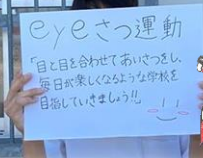 eyeさつ運動
「目と目を合わせてあいさつをし、
毎日が楽しくなるような学校を
目指していきましょう!!」